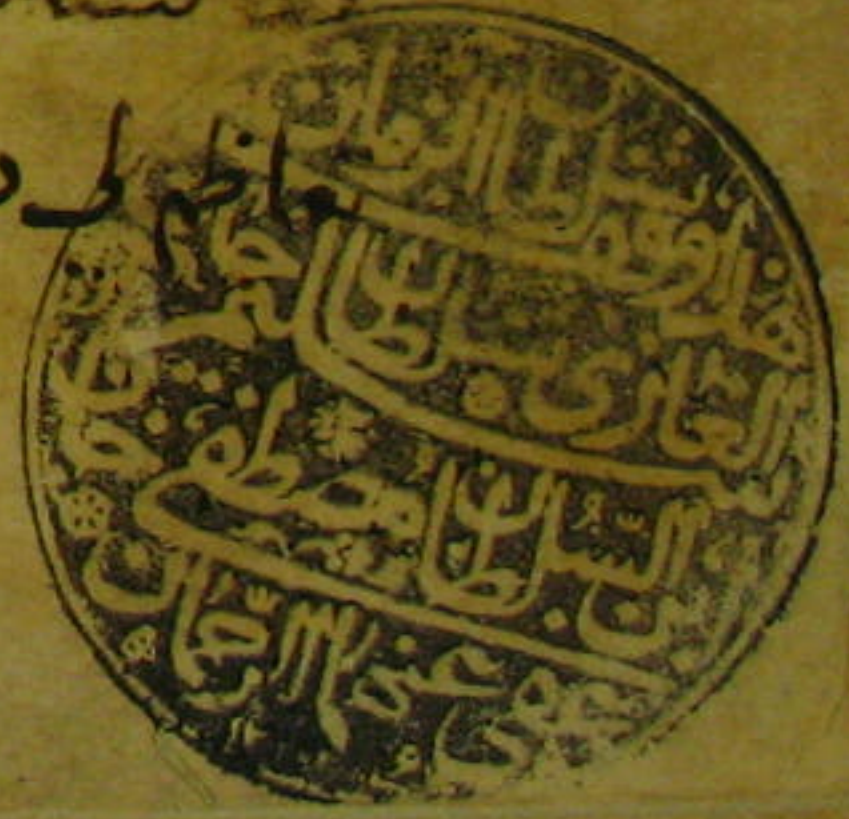 هذا وقف سلطان الزمان
الغازي سلطان سليم خان
بن السلطان مصطفى خان
عفى عنهما الرحمن